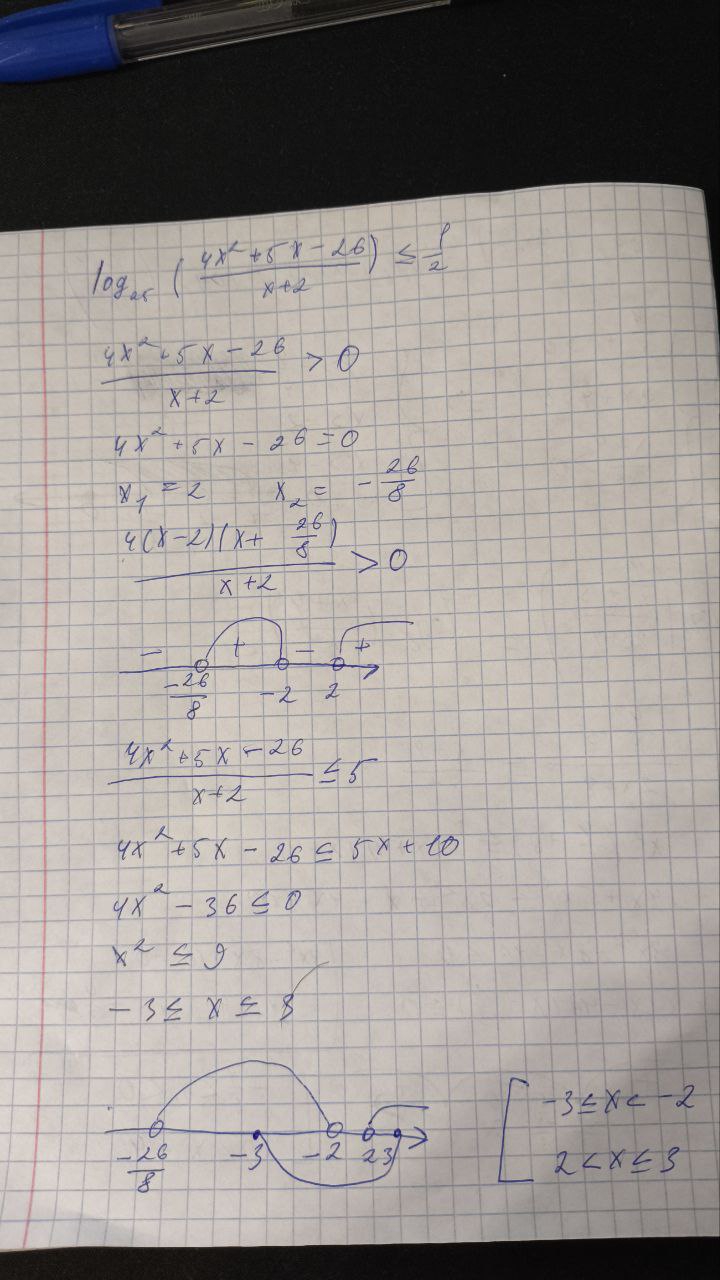 log₂₅ ( (4x² + 5x - 26)/(x+2) ) ≤ 1/2
(4x² + 5x - 26)/(x+2) > 0
4x² + 5x - 26 = 0
x₁ = 2 x₂ = -26/8
4(x-2)(x+ 26/8)/(x+2) > 0
- + - +
-26/8 -2 2
(4x² + 5x - 26)/(x+2) ≤ 5
4x² + 5x - 26 ≤ 5x + 10
4x² - 36 ≤ 0
x² ≤ 9
-3 ≤ x ≤ 3
-26/8 -3 -2 2 3
[ -3 ≤ x < -2
2 < x ≤ 3